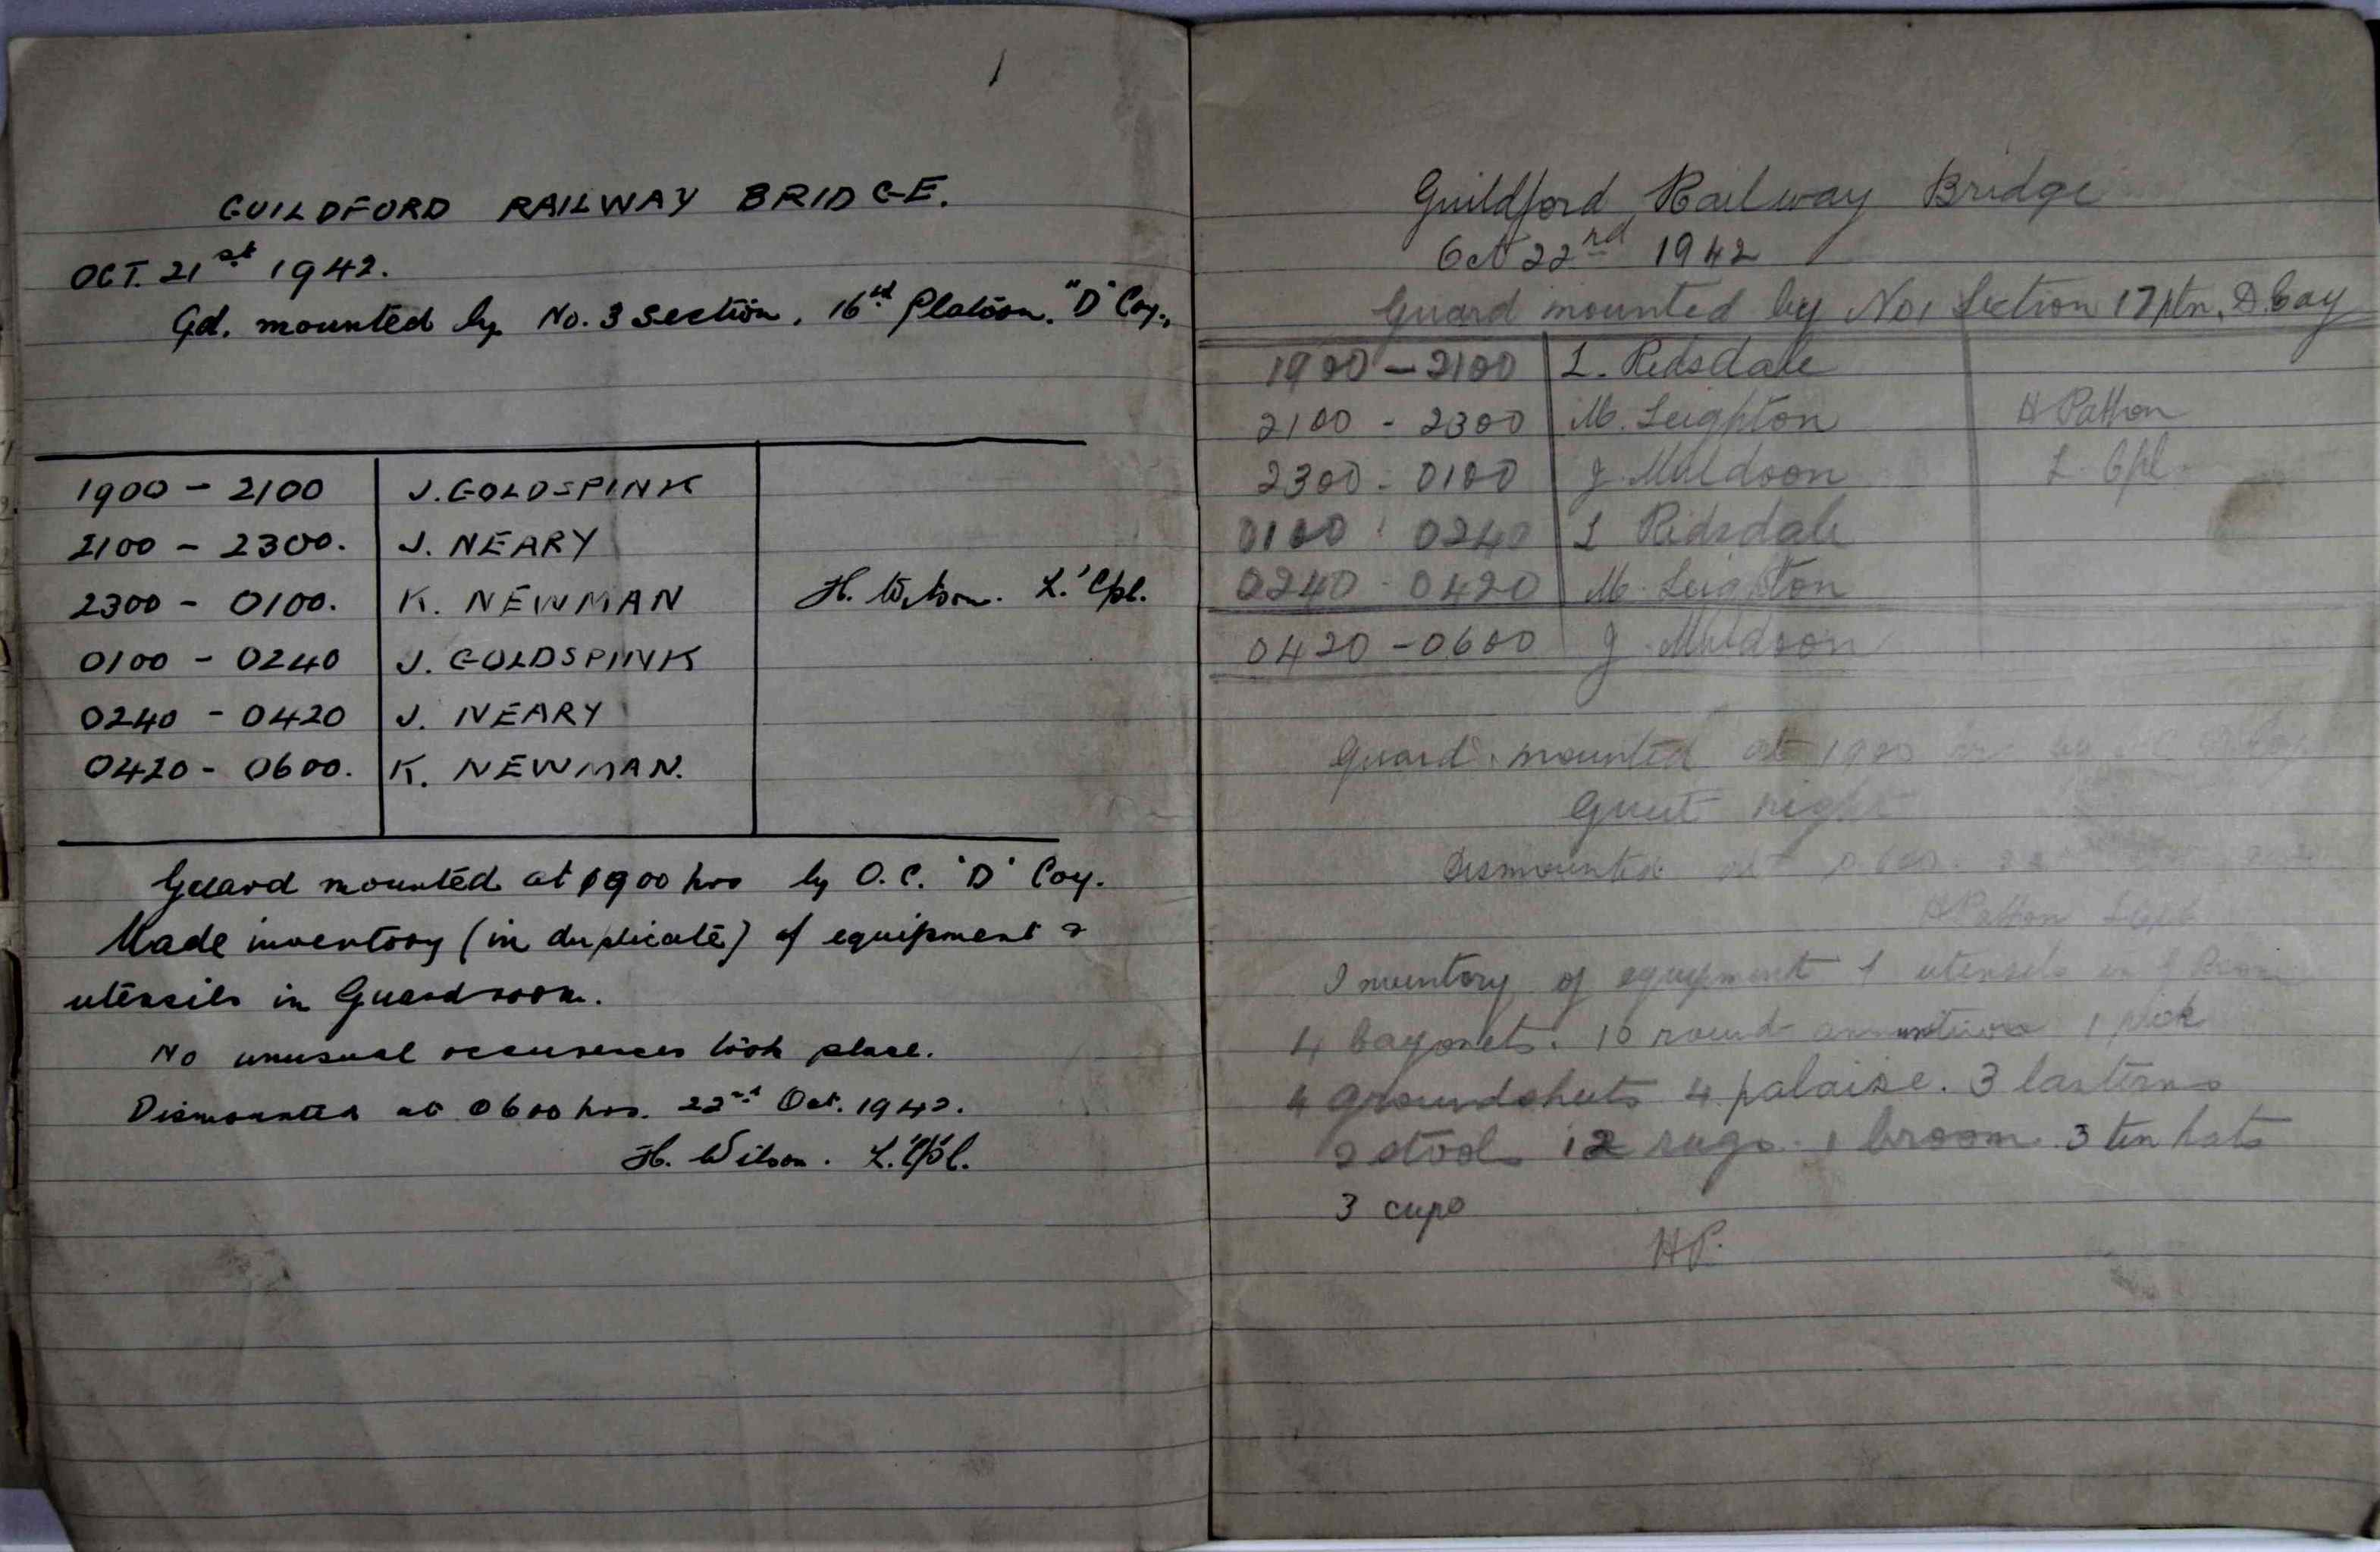 1
GUILDFORD RAILWAY BRIDGE.
OCT. 21st 1942.
Gd. mounted by No. 3 Section, 16th Platoon. "D" Coy.,
1900 - 2100 J. GOLDSPINK
2100 - 2300. J. NEARY
2300 - 0100. K. NEWMAN H. Wilson. L.'Cpl.
0100 - 0240 J. GOLDSPINK
0240 - 0420 J. NEARY
0420 - 0600. K. NEWMAN.
Guard mounted at 1900 hrs by O.C. 'D' Coy.
Made inventory (in duplicate) of equipment &
utensils in Guardroom.
No unusual occurences took place.
Dismounted at 0600 hrs. 22nd Oct. 1942.
H. Wilson. L.'Cpl.
Guildford Railway Bridge
Oct 22nd 1942
Guard mounted by No 1 Section 17 ptn. D. Coy
1900 - 2100 L. Ridsdale
2100 - 2300 M. Leighton H Patton
2300 - 0100 J. Muldoon L. Cpl.
0100 - 0240 L Ridsdale
0240 - 0420 M. Leighton
0420 - 0600 J. Muldoon
Guard mounted at 1900 by
Quiet night
Dismounted at
H Patton L Cpl
Inventory of equipment & utensils in G Room
4 bayonets. 10 round ammunition 1 pick
4 groundsheets 4 palaise. 3 lanterns
2 stools 12 rugs. 1 broom. 3 tin hats
3 cups
HP.